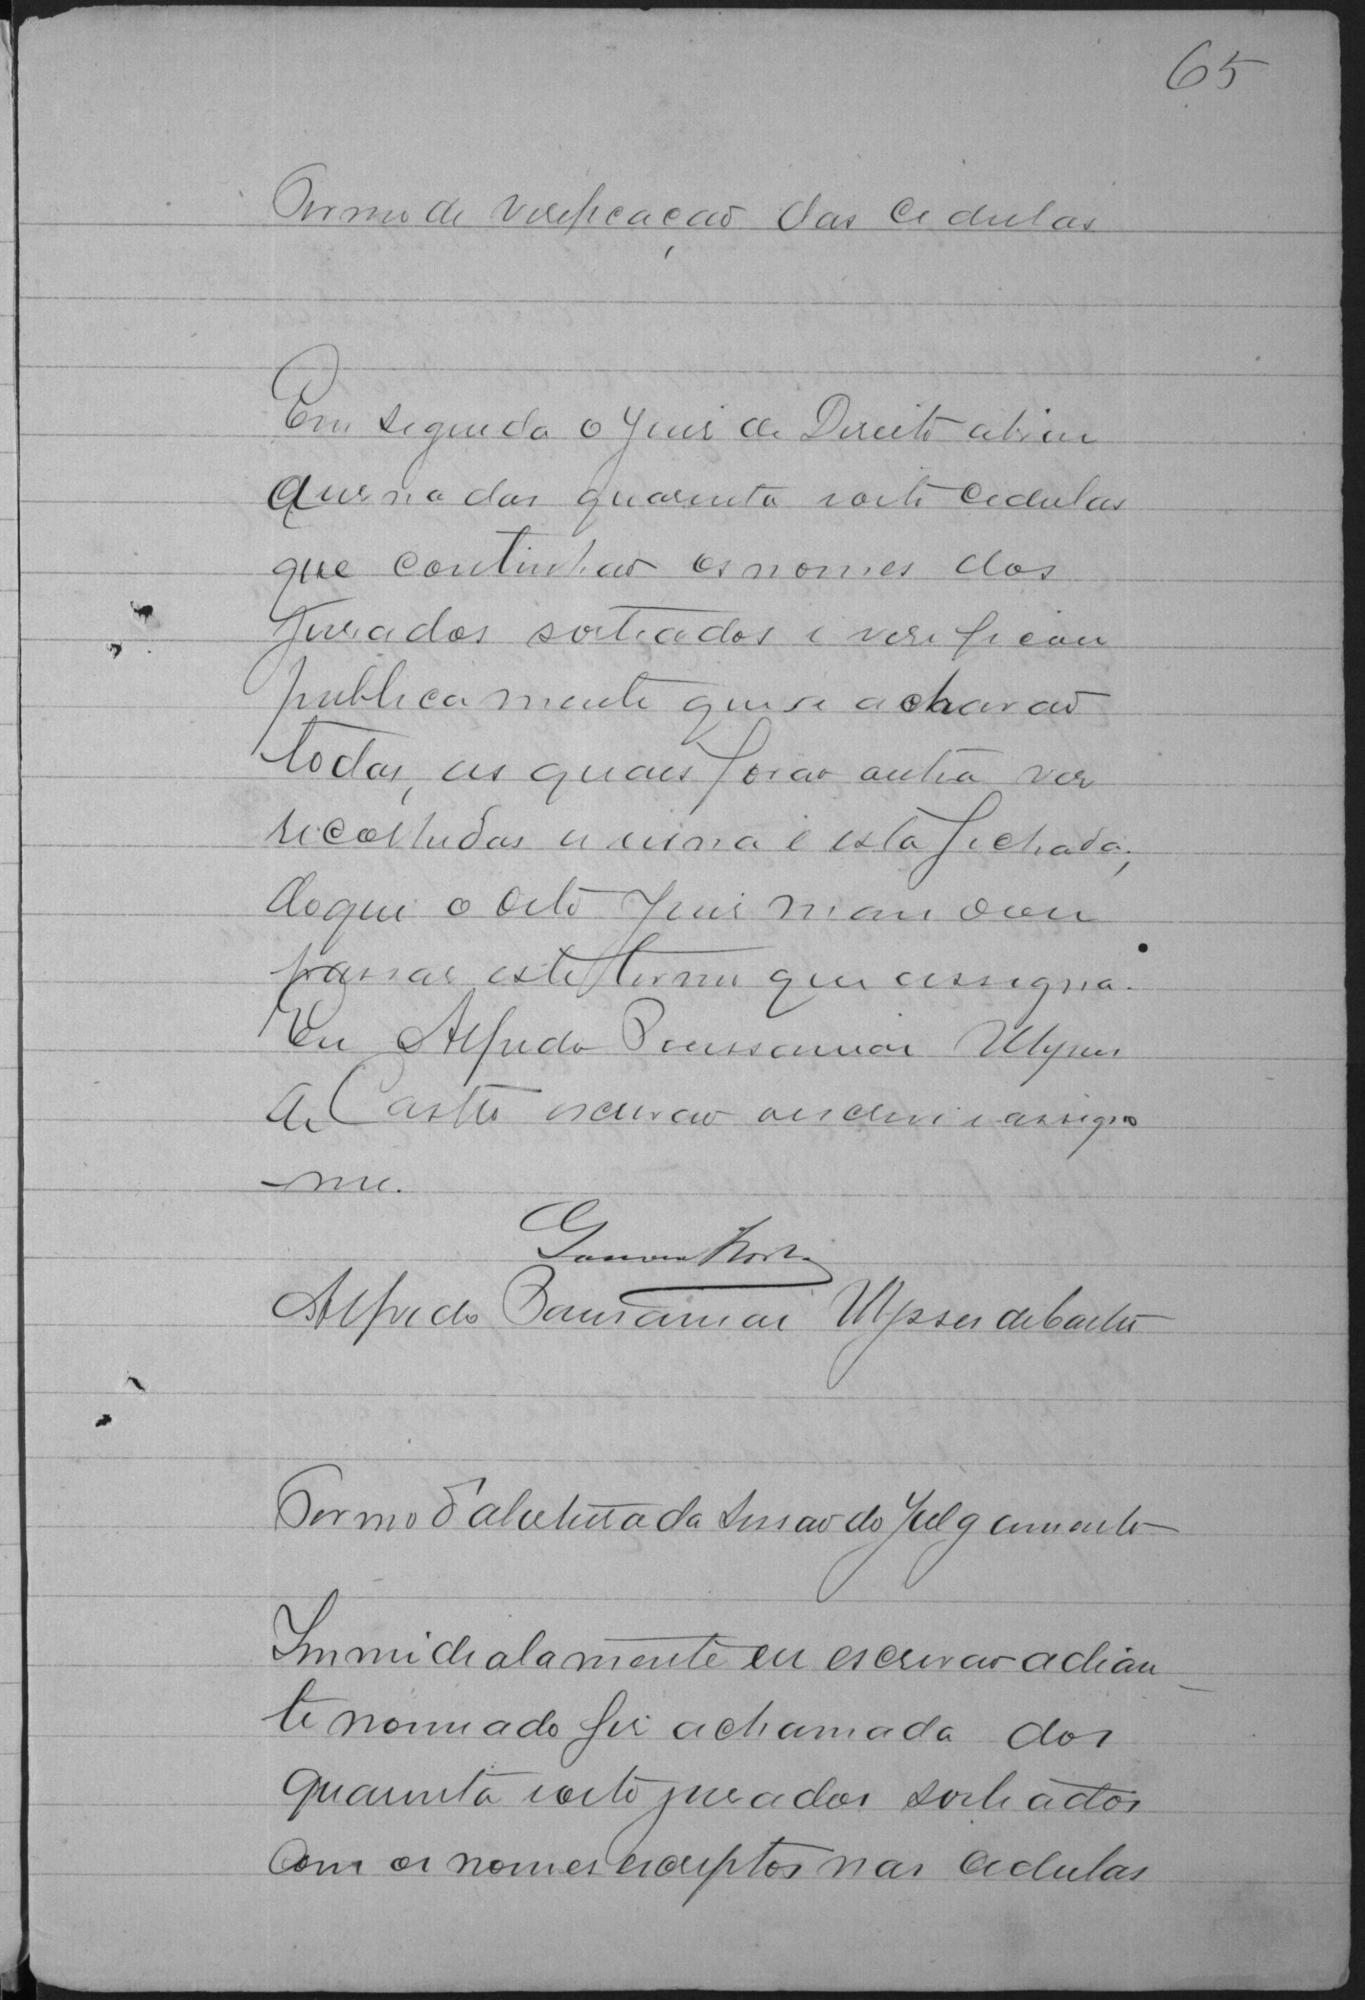 65
Termo de verificação das cedulas
Em seguida o Juiz de Direito abriu
a urna das quarenta e oito cedulas
que continhão os nomes dos
jurados sorteados e verificou
publicamente que se achavão
todas, as quaes forão outra vez
recolhidas a urna e esta fechada;
do que o dito Juiz mandou
passar este termo que assigna.
Eu Alfredo Ulysses
de Castro escrivão o escrevi e assigno
me.
Alfredo Ulysses de Castro
Termo d'abertura da sessão do Julgamento
Immidiatamente eu escrivão adian
te nomiado fiz a chamada dos
quarenta e oito jurados sorteados
com os nomes escriptos nas cedulas